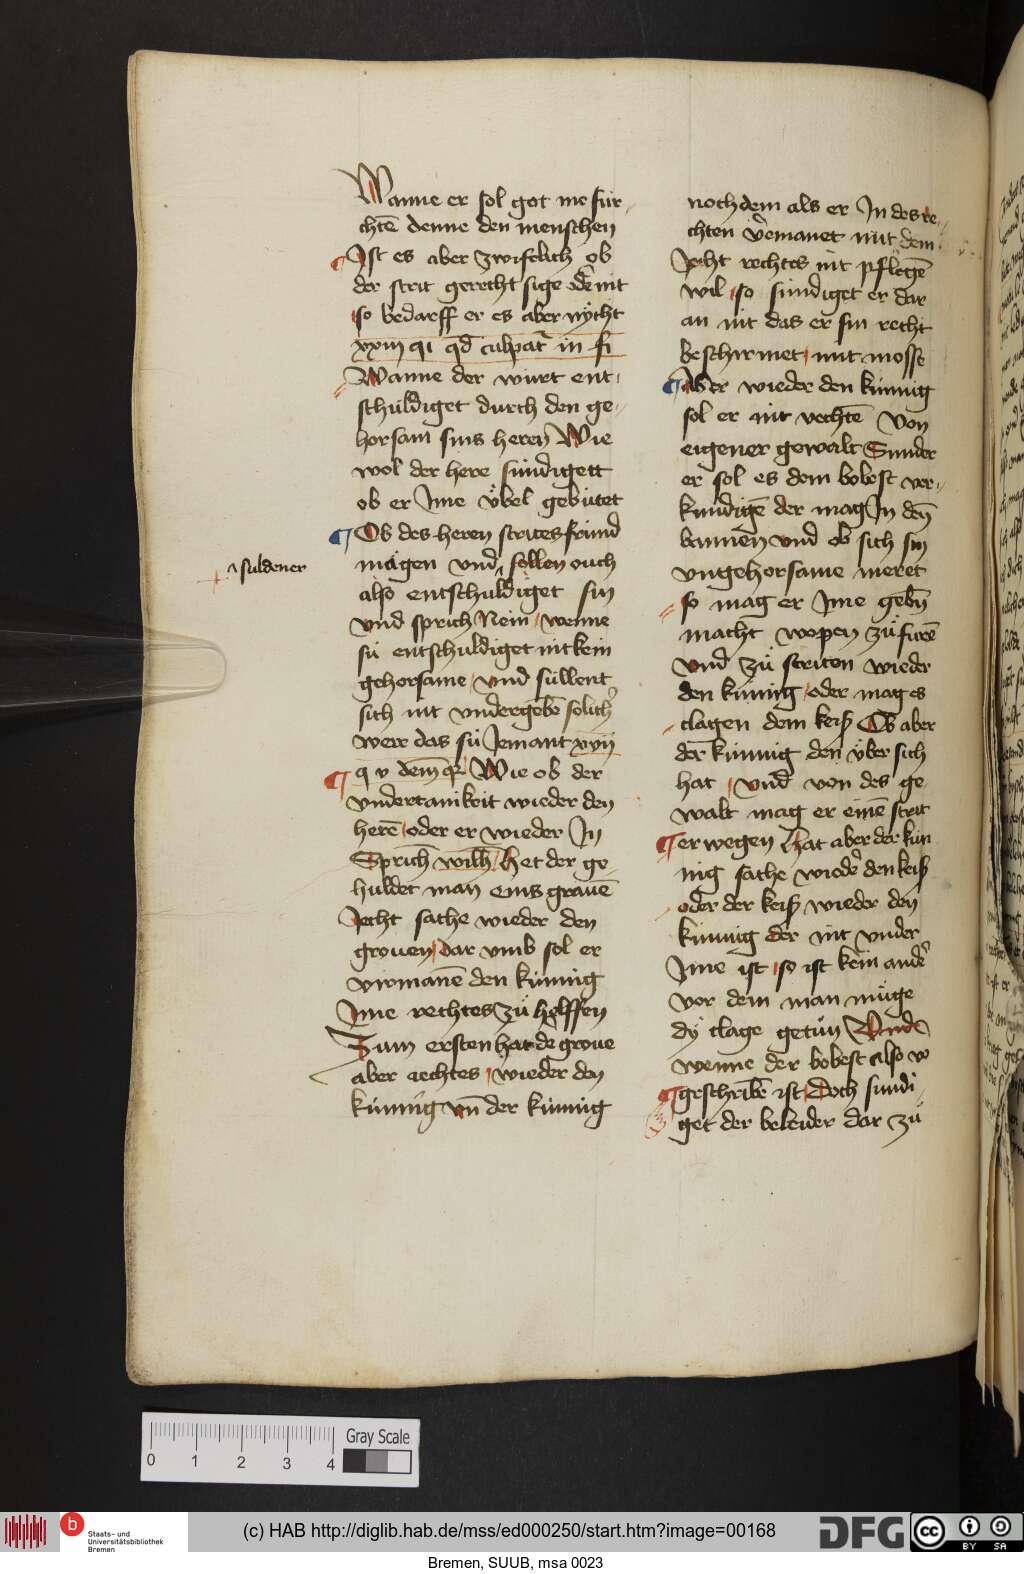 Wanne er sol got me für
chtē denne den menschen
Ist es aber zwifelich ob
der strit gerecht sige odͤ nit
so bedarff er es aber nÿcht
xxiii qi qd culpatͬ in fi
Wanne der würt ent
schuldiget durch den ge
horsam sins heren Wie
wol der here sündigett
ob er Ime übel gebütet
Ob des heren strites fründ
mägen vnd sollen ouch
suldener
also entschuldiget sin
vnd sprich Nein wenne
sü entschuldiget nit kein
gehorsame vnd süllent
sich nit vndergebē solichͬ
were das sü Iemant xxiij
q v dem Wie ob der
vndertanikeit wieder den
herē oder er wieder In
Sprich wilh Het der ge
huldet man eins grauē
Iecht sache wieder den
grouen dar vmb sol er
virmanē den künnig
Ime rechtes zü helffen
Zum ersten hat dͤ groue
aber rechtes wieder den
künnig vn̄ der künnig
noch dem als er In des re
chten vͤmanet mit dem
Iecht rechtes nit pflegē
wil so sündiget er dar
an nit das er sin recht
beschirmet mit mosse
Aber wieder den künnig
sol er nit vechtē von
eigener gewalt Sunder
er sol es dem bobest ver
kündigē der mag In den̄
bannen vnd ob sich sin
vngehorsame meret
so mag er Ime geben̄
macht wopen zü fürē
vnd zü striten wieder
den künnig oder mag es
clagen dem keiſ Ob aber
der künnig den über sich
hat vnd von des ge
walt mag er einē strit
erwegen Hat aber der kün
nig sache wiedeͬ den keiſ
oder der keiſ wieder den
künnig der nit vnder
Ime ist so ist kein andeͬ
vor dem man müge
dÿ clage getün Vnde
wenne der bobest also v
geschribē ist doch sündi
get der beleider dar zü
Gray Scale
0 1 2 3 4
b
Staats- und
Universitätsbibliothek
Bremen
(c) HAB http://diglib.hab.de/mss/ed000250/start.htm?image=00168
DFG
cc
BY SA
Bremen, SUUB, msa 0023